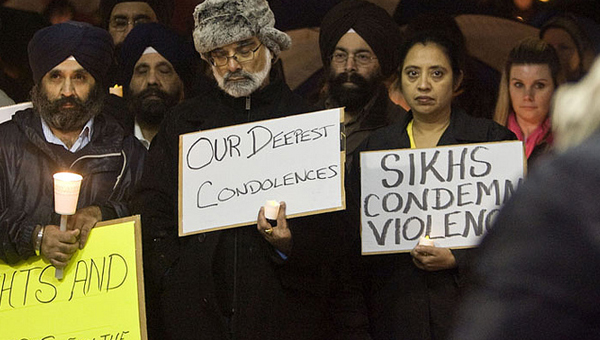 OUR DEEPEST
CONDOLENCES
SIKHS
CONDEMN
VIOLENC
HTS AND